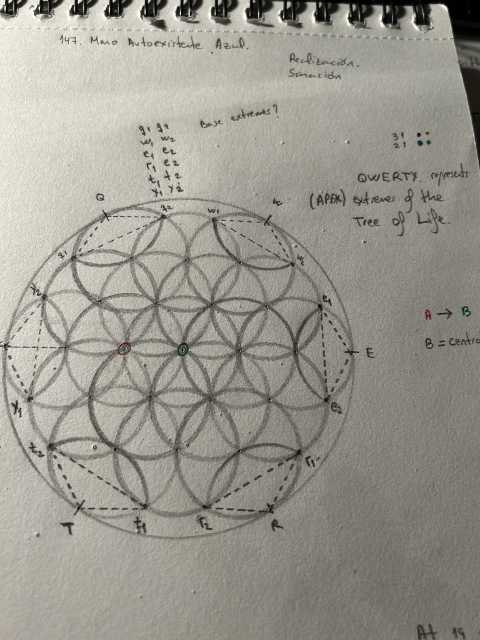 147. Mano Autoexistente Azul.
Realización.
Sanación
q1 q2
w1 w2
e1 e2
r1 e2
t1 t2
y1 y2
Base extremes?
31
21
QWERTY represents
(APEX) extremes of the
Tree of Life.
A → B
B = centro
Q
q2
w1
q1
w2
y2
e1
E
y1
e2
t2
r1
T
t1
r2
R